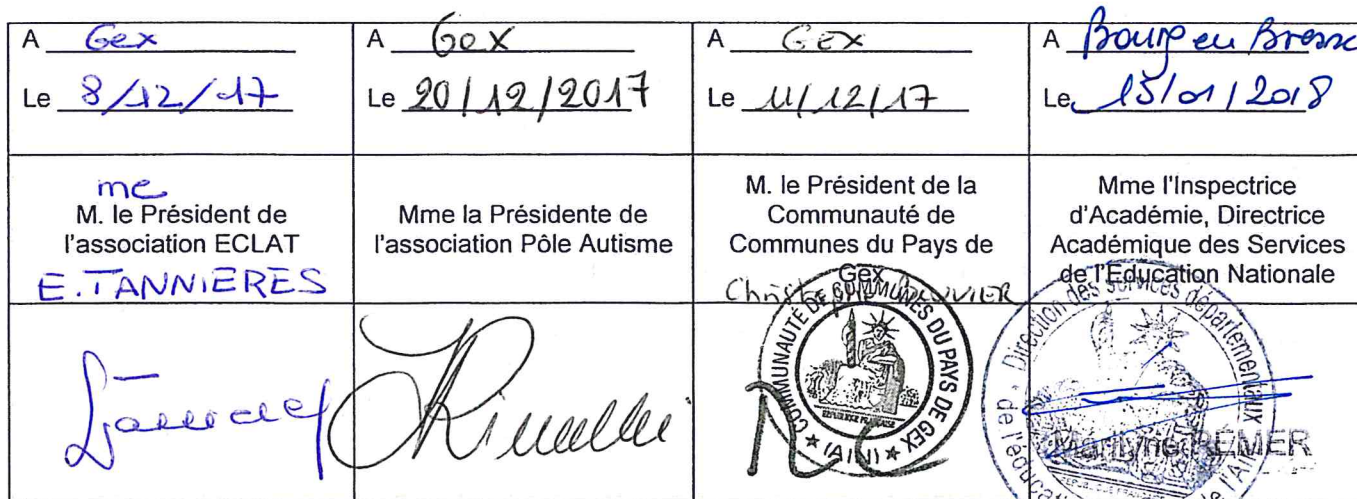 A Gex
Le 8/12/17
A Gex
Le 20/12/2017
A GEX
Le 11/12/17
A Bourg en Bresse
Le 15/01/2018
me
M. le Président de
l'association ECLAT
E. TANNIERES
Mme la Présidente de
l'association Pôle Autisme
M. le Président de la
Communauté de
Communes du Pays de
Gex
Mme l'Inspectrice
d'Académie, Directrice
Académique des Services
de l'Education Nationale
COMMUNAUTÉ DE COMMUNES DU PAYS DE GEX
(AIN)
Direction des services départementaux
de l'éducation
RÉMER